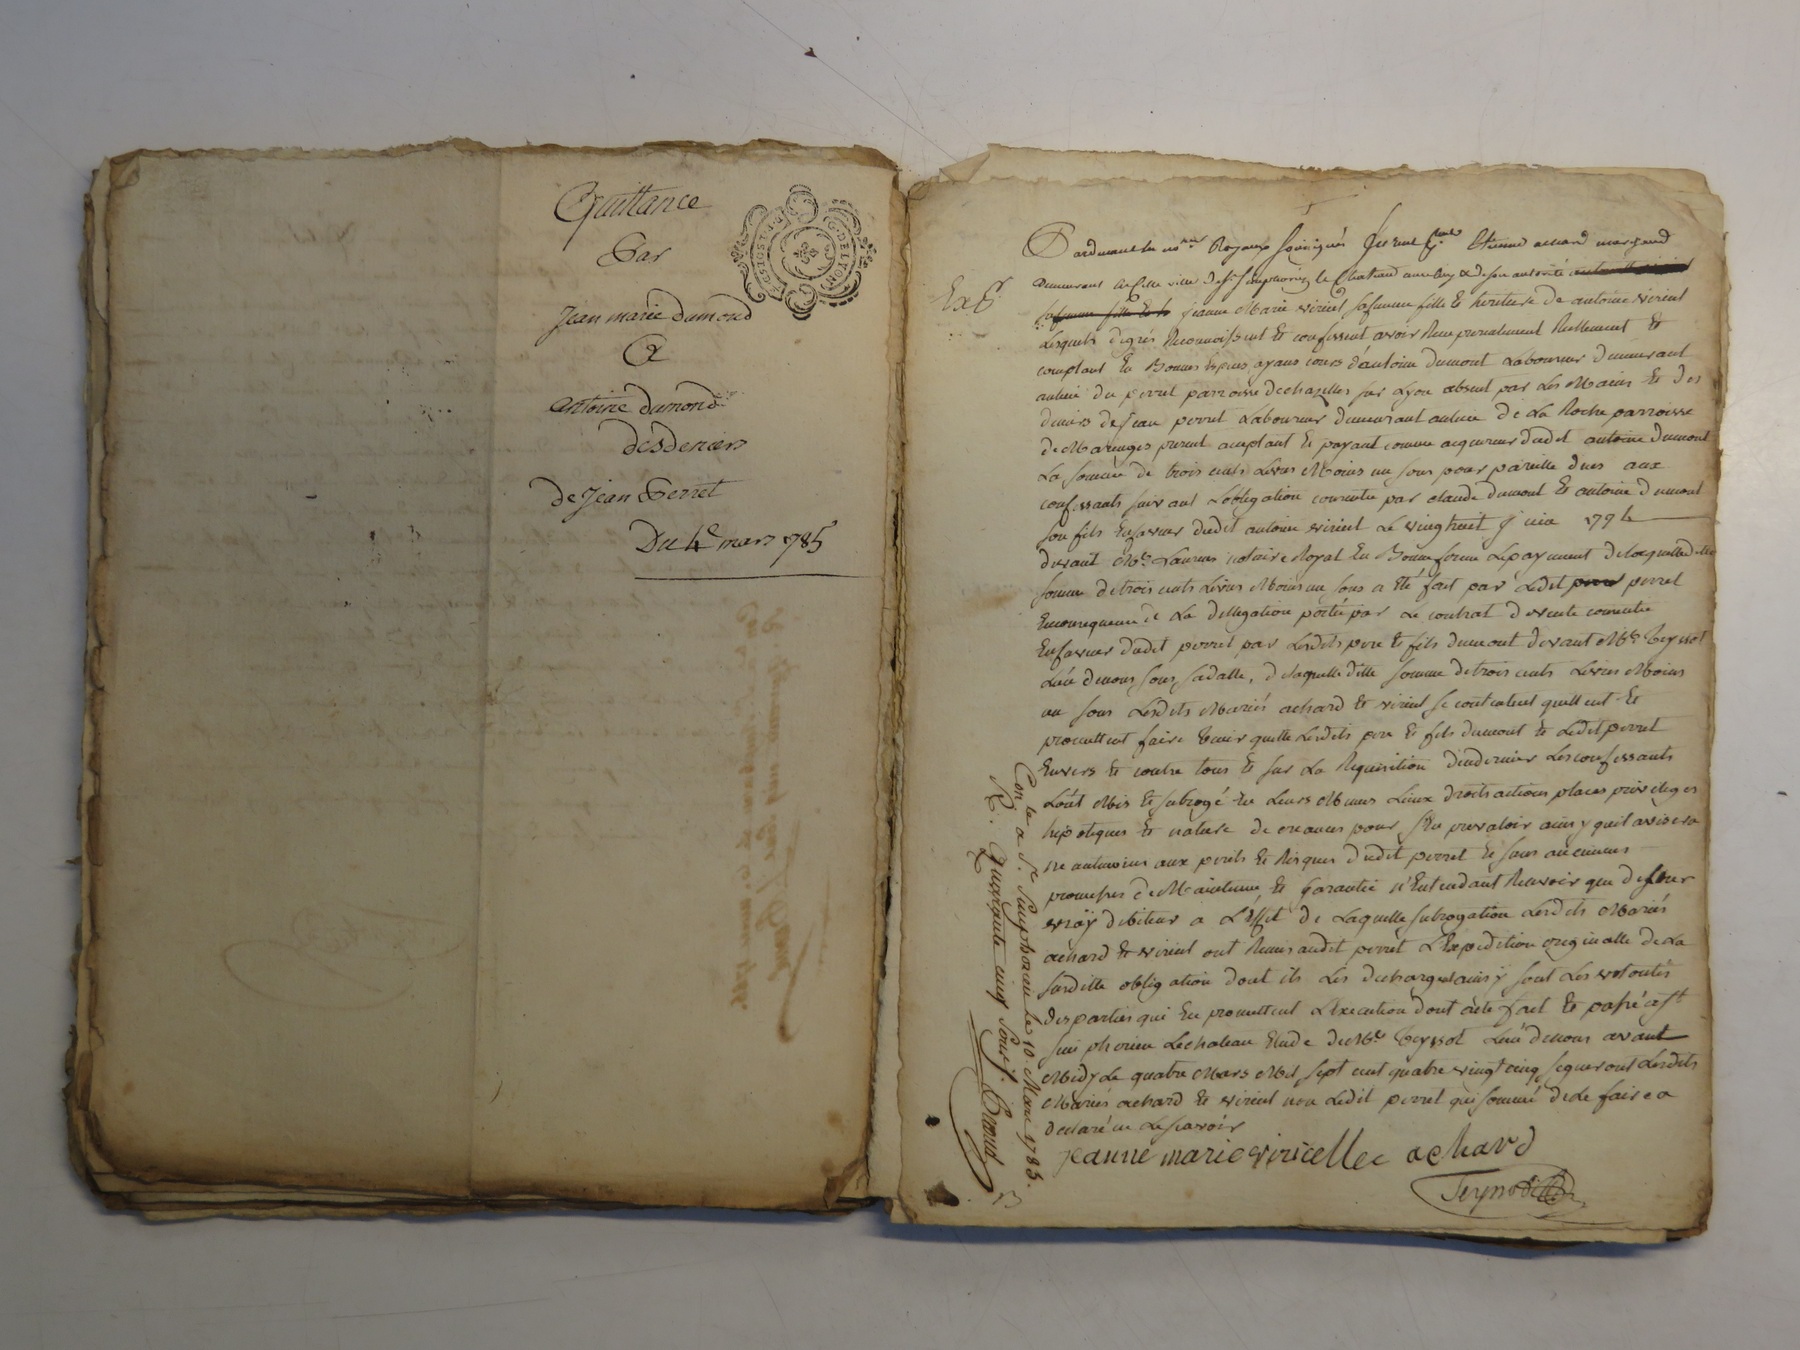 Quittance
Par
Jean marie dumond
&
Antoine dumond
des deniers
de Jean Perret
Du 4e mars 1785
G. DE LYON
Exp.
Pardevant les nores Royaux soussignés furent pnts Etienne achard marchand
demeurant en cette ville de st simphorien le Chateau et de son autorité
jeanne Marie viricel sa femme fille et heritiere de antoine viricel
Lesquels de grés Reconnoissent et confessent avoir Reçu presentement Reellement et
comptant En Bonnes Especes ayans cours d'antoine dumont Laboureur demeurant
au lieu du perret parroisse de chazelles sur Lyon absent par Les Mains et des
deniers de jean perret Laboureur demeurant au lieu de La Roche parroisse
de Maringes present acceptant et payant comme acquereur dudit antoine dumont
La somme de trois cents Livres Moins un sous pour pareille dues aux
confessants suivant L'obligation consentie par claude dumont et antoine dumont
son fils En faveur dudit antoine viricel Le vingt huit juin 1774
devant Me notaire Royal En Bonne forme Le payement de laquelle ditte
somme de trois cents Livres Moins un sous a été fait par Ledit perret
En consequence de La dellegation portée par Le contrat de vente consentie
En faveur dudit perret par Lesdits pere et fils dumont devant Me Teyssot
L'un de nous sous sa datte, de laquelle ditte somme de trois cents Livres Moins
un sous Lesdits Mariés achard et viricel se contentent quittent et
promettent faire tenir quitte Lesdits pere et fils dumont et Ledit perret
Envers et contre tous et sur La Requisition du dernier Les confessants
L'ont Mis et subrogé En Leurs Memes Lieux droits actions places privileges
hipoteques et nature de creances pour s'En prevaloir ainsy qu'il avisera
neantmoins aux perils et Risques dudit perret et sans aucunes
promesses de Maintenue et Garantie n'Entendant Recevoir que de Leur
vray debiteur a L'Effet de Laquelle subrogation Lesdits Mariés
achard et viricel ont Remis audit perret L'Expedition originalle de La
susditte obligation dont ils Les decharge ainsy sont Les volontés
des parties qui En promettent L'Execution dont acte fait et passé a st
simphorien Le chateau Etude de Me Teyssot L'un de nous avant
Midy Le quatre Mars Mil sept cent quatre vingt cinq signeront Lesdits
Mariés achard et viricel non Ledit perret qui sommé de Le faire a
declaré ne Le scavoir
jeanne marie viricelle achard
Teyssot
Con. le a St. Simphorien le 10. Mars 1785.
R. quarante cinq sous